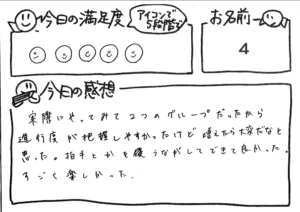 今日の満足度
アイコンで
5段階で
お名前
4
今日の感想
実際にやってみて2つのグループだったから
進行度が把握しやすかったけど増えたら大変だなと
思った。拍手とかを うながしてできて良かった。
すごく楽しかった.